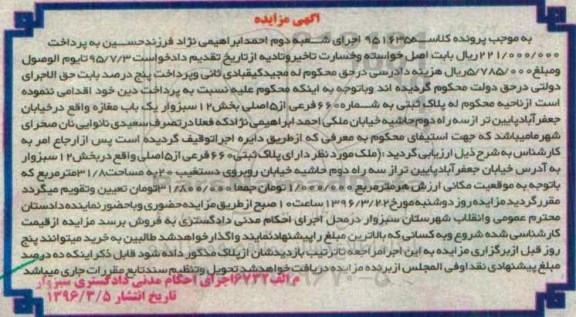 آگهی مزایده
به موجب پرونده کلاسه ۹۵۱۶۳۵ اجرای شعبه دوم احمد ابراهیمی نژاد فرزند حسین به پرداخت
۲۲۱/۰۰۰/۰۰۰ ریال بابت اصل خواسته و خسارت تاخیر و تادیه از تاریخ تقدیم دادخواست ۹۵/۷/۳ تا یوم الوصول
و مبلغ ۵/۷۸۵/۰۰۰ ریال هزینه دادرسی در حق محکوم له مجید کیقبادی ثانی و پرداخت پنج درصد بابت حق الاجرای
دولتی در حق دولت محکوم گردیده اند و باتوجه به اینکه محکوم علیه نسبت به پرداخت دین خود اقدامی ننموده
است از ناحیه محکوم له پلاک ثبتی به شماره ۶۶۰ فرعی از ۵ اصلی بخش ۱۲ سبزوار یک باب مغازه واقع در خیابان
جعفرآباد پایین تر از سه راه دوم حاشیه خیابان ملکی احمد ابراهیمی نژاد که فعلا در تصرف سعیدی نانوایی نان صحرای
شهر ما میباشد که جهت استیفای محکوم به معرفی که از طریق دایره اجرا توقیف گردیده است پس از ارجاع امر به
کارشناس به شرح ذیل ارزیابی گردید: (ملک مورد نظر دارای پلاک ثبتی ۶۶۰ فرعی از ۵ اصلی واقع در بخش ۱۲ سبزوار
به آدرس خیابان جعفرآباد پایین تر از سه راه دوم حاشیه خیابان روبروی دستغیب ۲۰ به مساحت ۳۱/۸ مترمربع که
باتوجه به موقعیت مکانی ارزش هر مترمربع ۱/۰۰۰/۰۰۰ تومان جمعا ۳۱/۸۰۰/۰۰۰ تومان تعیین و تقویم میگردد
مقرر گردید مزایده روز دوشنبه مورخ ۱۳۹۶/۳/۲۲ ساعت ۱۰ صبح از طریق مزایده حضوری و باحضور نماینده دادستان
محترم عمومی و انقلاب شهرستان سبزوار در محل اجرای احکام مدنی دادگستری به فروش برسد مزایده از قیمت
کارشناسی شده شروع و به کسانی که بالاترین مبلغ را پیشنهاد نمایند واگذار خواهد شد طالبین به خرید میتوانند پنج
روز قبل از برگزاری مزایده به این اجرا مراجعه تا ترتیب بازدیدشان از پلاک مذکور داده شود قابل ذکر اینکه ده درصد
مبلغ پیشنهادی نقدا و فی المجلس از برنده مزایده دریافت خواهد شد تحویل و تنظیم سند تابع مقررات جاری میباشد
م الف ۶۷۳۲ اجرای احکام مدنی دادگستری سبزوار
تاریخ انتشار ۱۳۹۶/۳/۵